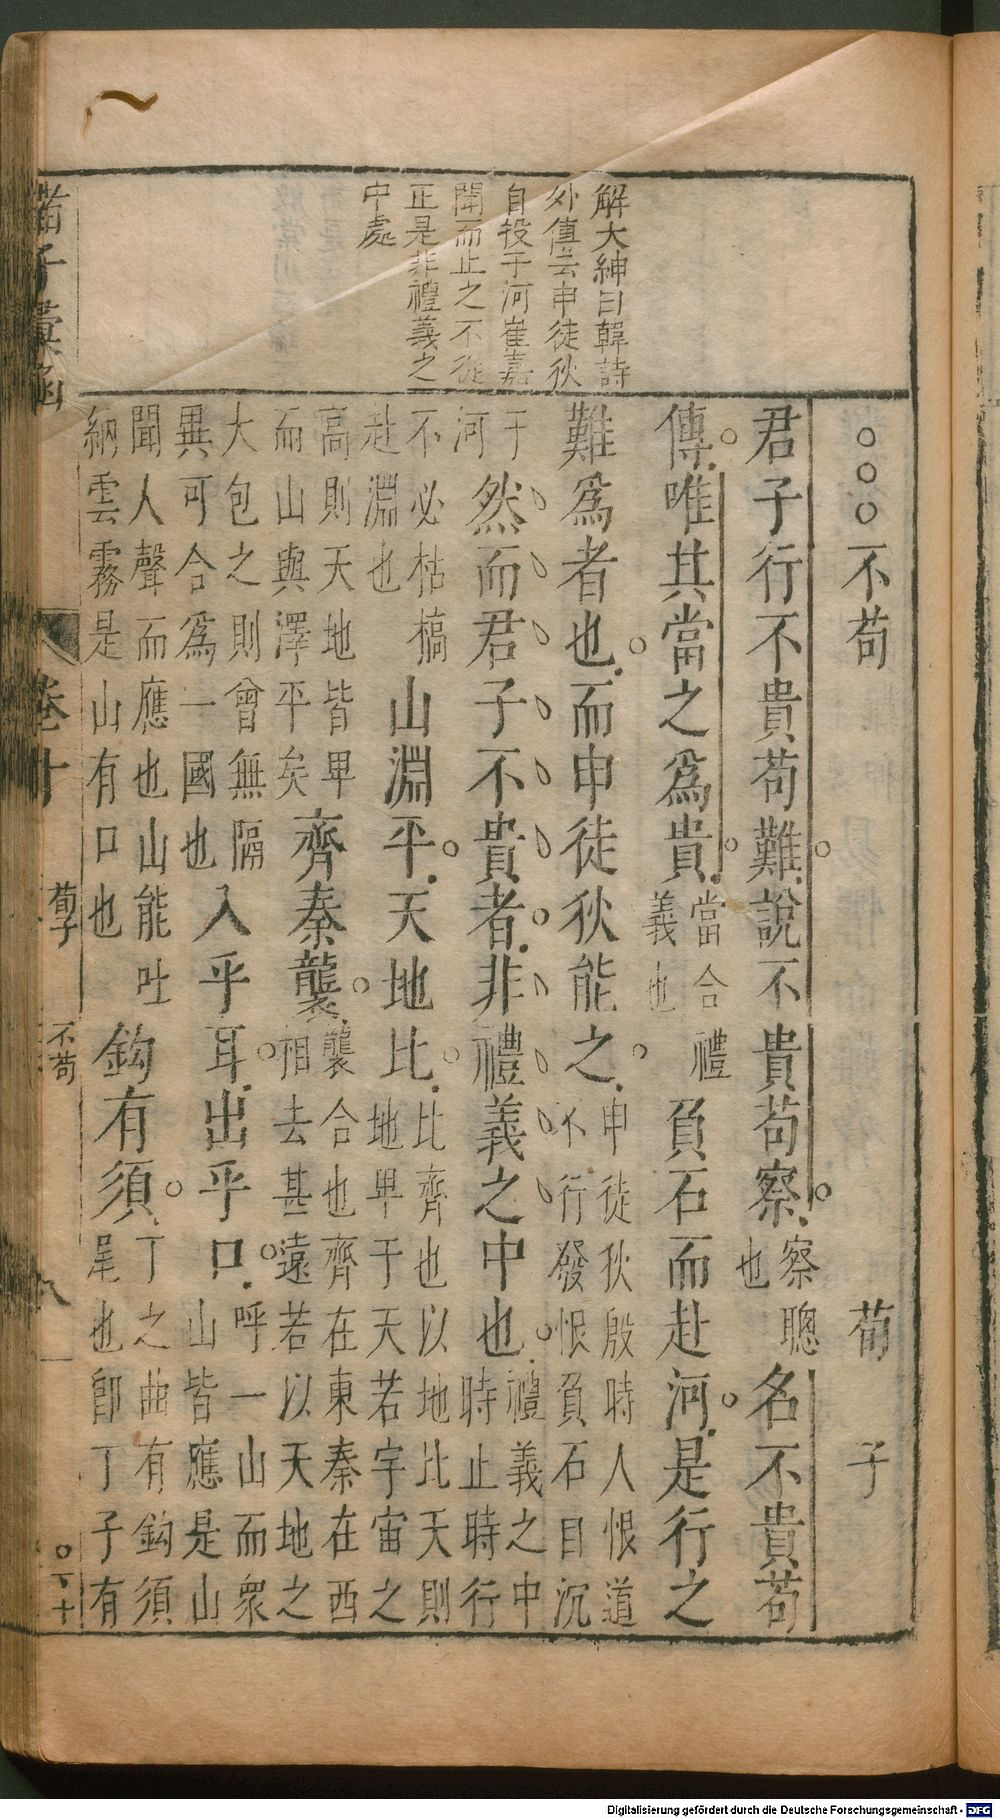 解大紳曰韓詩
外傳云申徒狄
自投于河崔嘉
聞而止之不從
正是非禮義之
中處
○○○不苟　荀子
君子行不貴苟難說不貴苟察察聰也名不貴苟
傳唯其當之為貴當合禮義也負石而赴河是行之
難為者也而申徒狄能之申徒狄殷時人恨道不行發恨負石自沉
于河然而君子不貴者非禮義之中也禮義之中時止時行
不必枯槁赴淵也山淵平天地比比齊也以地比天則地卑于天若宇宙之
高則天地皆卑而山與澤平矣齊秦襲襲合也齊在東秦在西相去甚遠若以天地之
大包之則曾無隔異可合為一國也入乎耳出乎口呼一山而眾山皆應是山
聞人聲而應也山能吐納雲霧是山有口也鈎有須丁之曲有鈎須尾也卽丁子有
荀子彙函
卷十
荀子
不苟
八
○下十
Digitalisierung gefördert durch die Deutsche Forschungsgemeinschaft - DFG